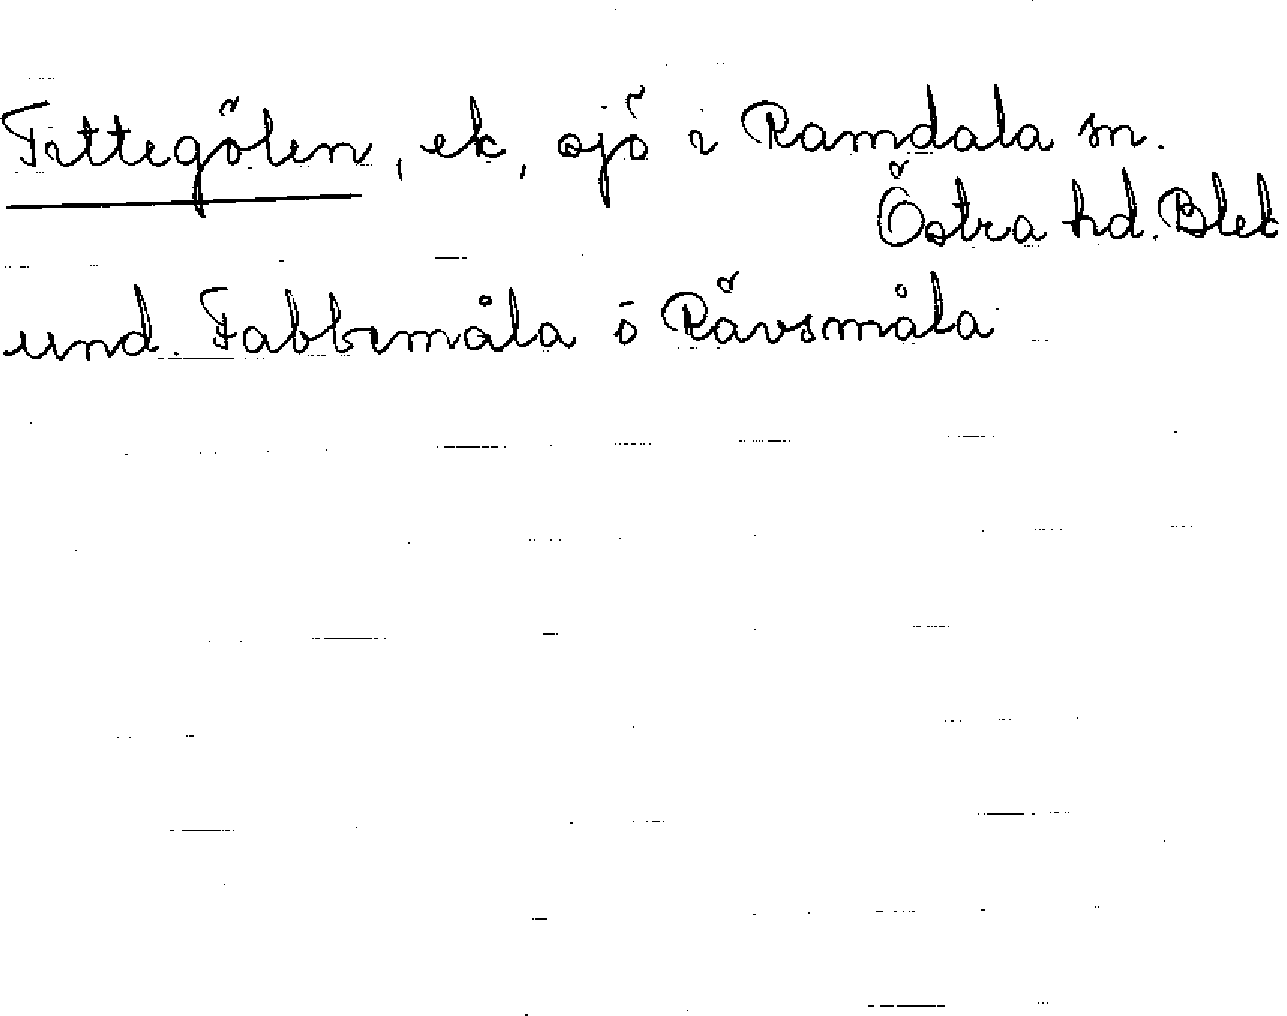 Fittegölen, ek, sjö i Ramdala sn.
Östra hd. Blek
und. Fabbemåla ö Rävsmåla